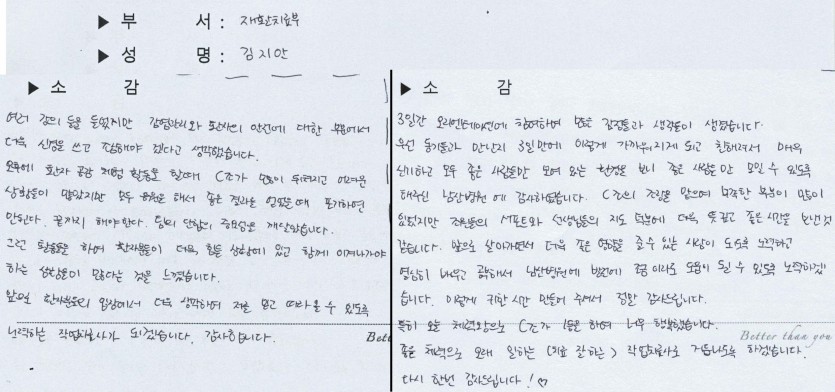 ▶ 부 서 : 재활치료부
▶ 성 명 : 김지안
▶ 소 감
여러 강의 등을 들었지만 감염관리와 환자의 안전에 대한 부분에서
더욱 신경을 쓰고 조심해야 겠다고 생각했습니다.
오후에 환자 공감 체험 활동을 할때 C조가 많이 뒤쳐지고 어려운
상황들이 많았지만 모두 응원을 해서 좋은 결과를 얻었을때 포기하면
안된다. 끝까지 해야한다. 팀의 단합의 중요성을 깨달았습니다.
그런 활동들을 하여 환자분들이 더욱 힘든 상황에 있고 함께 이겨나가야
하는 상황들이 많다는 것을 느꼈습니다.
앞으로 환자분들의 입장에서 더욱 생각하여 저를 믿고 따라올 수 있도록
노력하는 작업치료사가 되겠습니다. 감사합니다.
Bett
▶ 소 감
3일간 오리엔테이션에 참여하여 많은 감정들과 생각들이 생겼습니다.
우선 동기들과 만난지 3일만에 이렇게 가까워지게 되고 친해져서 매우
신기하고 모두 좋은 사람들만 모여 있는 현장을 보니 좋은 사람들만 모일 수 있도록
해주신 남산병원에 감사하였습니다. C조의 조장을 맡으며 부족한 부분이 많이
있었지만 조원들의 서포트와 선생님들의 지도 덕분에 더욱 뜻깊고 좋은 시간을 보낸것
같습니다. 앞으로 살아가면서 더욱 좋은 영향을 줄 수 있는 사람이 되도록 노력하고
열심히 배우고 공부해서 남산병원에 발전에 조금이라도 도움이 될 수 있도록 노력하겠
습니다. 이렇게 귀한 시간 만들어 주셔서 정말 감사드립니다.
특히 오늘 체력왕으로 C조가 1등을 하여 너무 행복했습니다.
좋은 체력으로 오래 일하는 (치료 잘하는) 작업치료사로 거듭나도록 하겠습니다.
Better than you
다시 한번 감사드립니다!♡